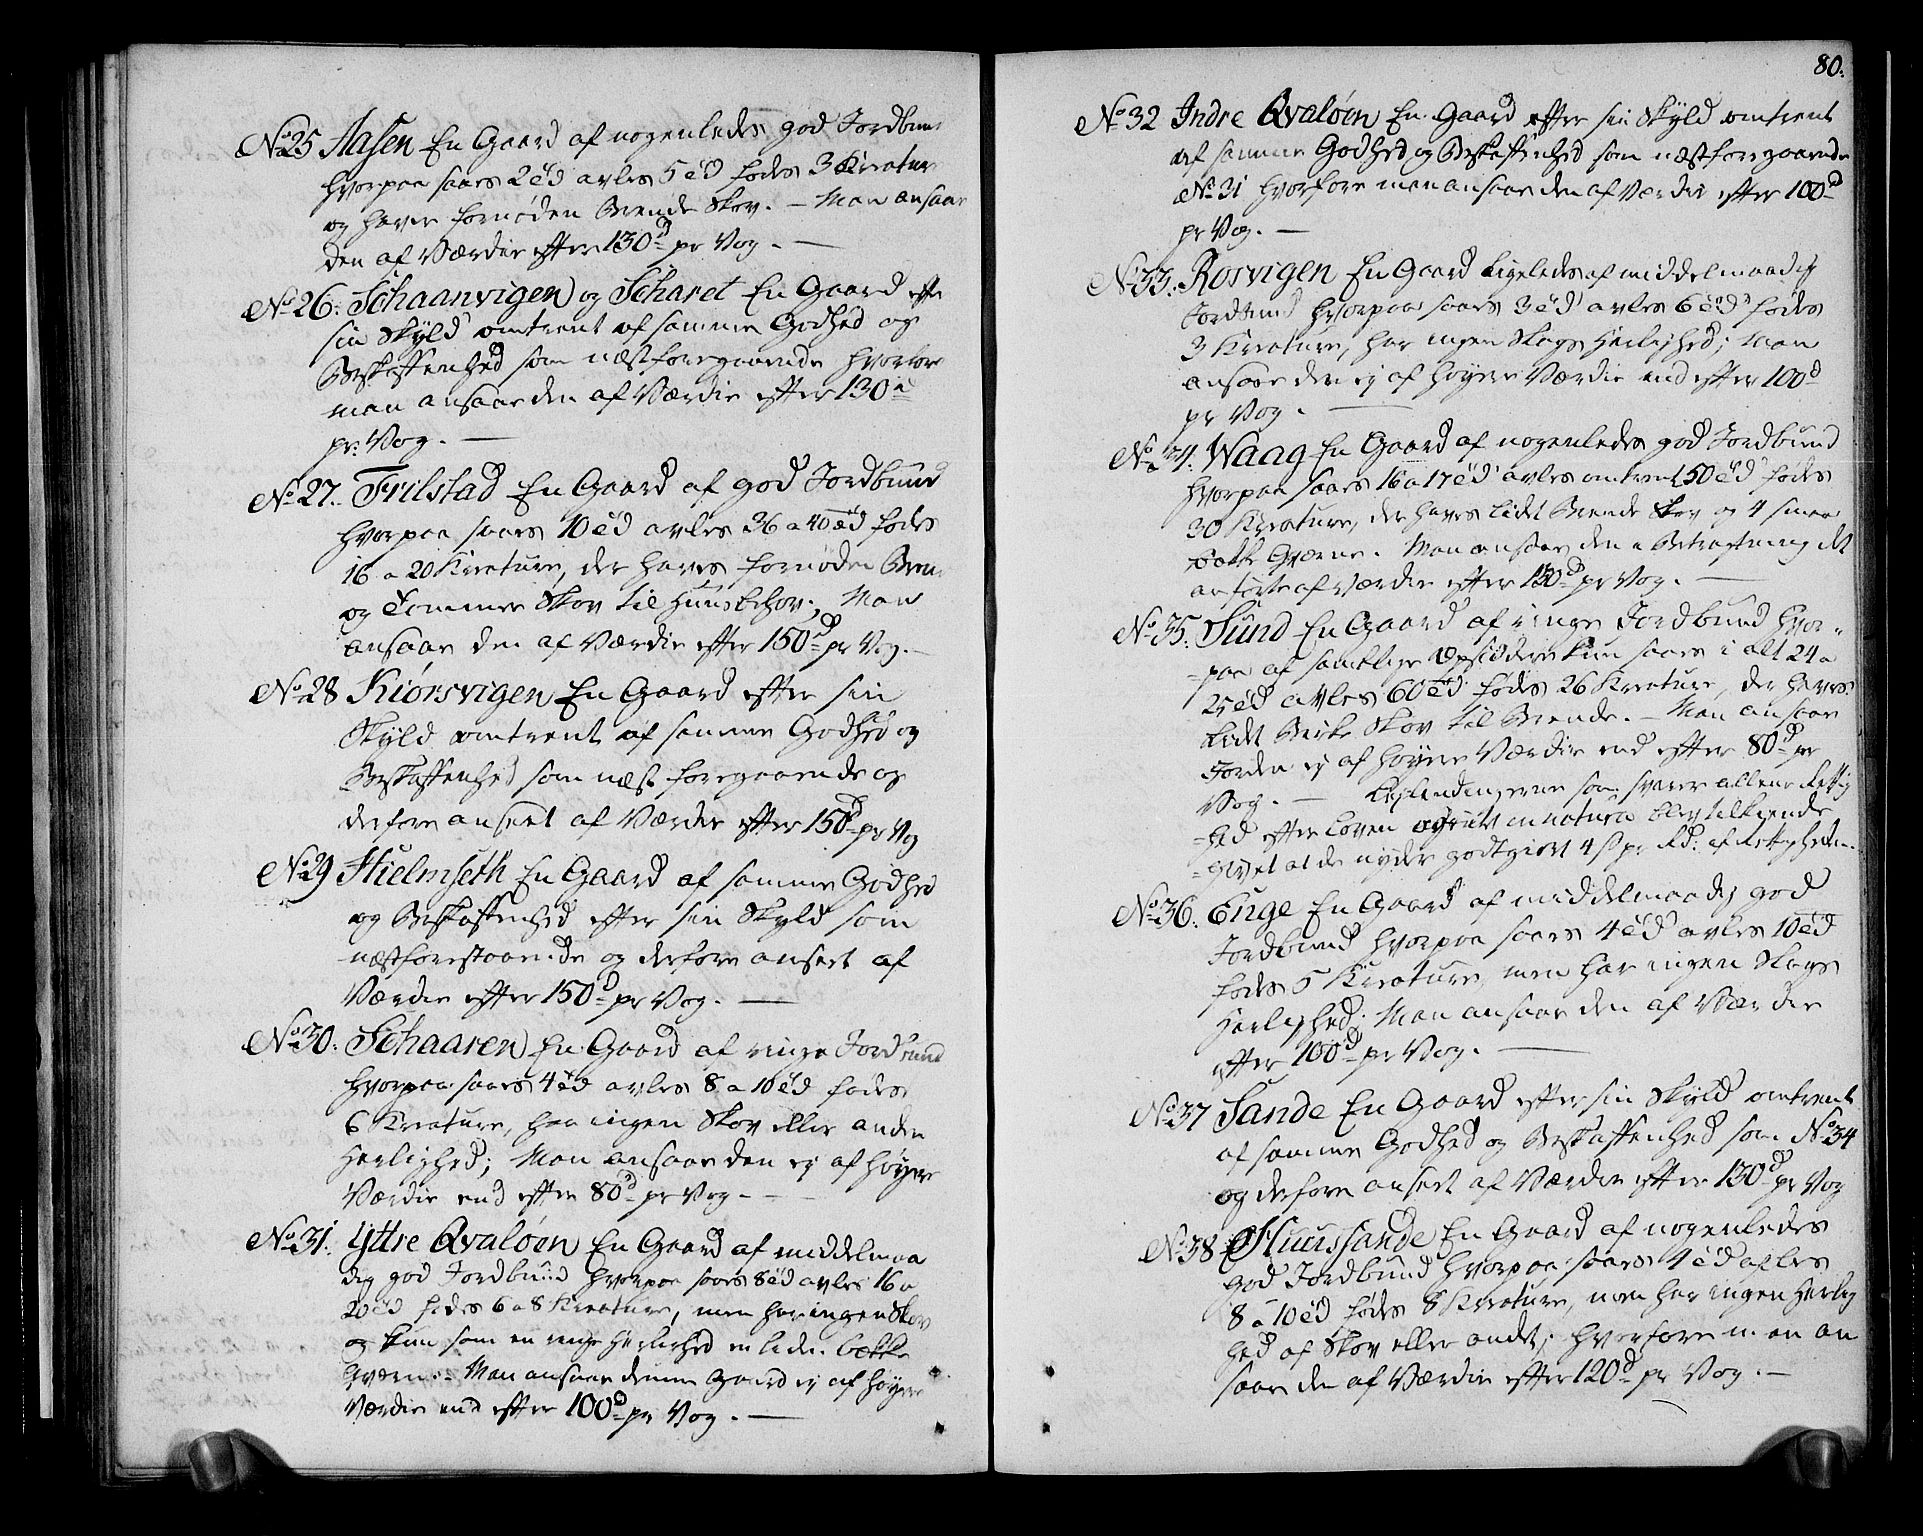 No 25 Aasen En Gaard af nogenledes god Jordbund
hvorpaa saaes 2 td avles 5 td fødes 3 Kreature
og haver fornøden Brende Skov. – Man ansaae
den af Værdie efter 130 d pr Vog. –
No 26. Schaanvigen og Scharet En Gaard efter
sin Skyld omtrent af samme Godhed og
Beskaffenhed som næstforegaaende hvorfor
man ansaae den af Værdie efter 130 d
pr: Vog. –
No 27. Trilstad En Gaard af god Jordbund
hvorpaa saaes 10 td avles 36 a 40 td fødes
16 a 20 Kreature, der haves fornøden Brende
og Tømmer Skov til Huusbehov; Man
ansaae den af Værdie efter 150 d pr Vog. –
No 28 Kiørsvigen En Gaard efter sin
Skyld omtrent af samme Godhed og
Beskaffenhed som næst foregaaende og
derfore anseet af Værdie efter 150 d pr Vog
No 29 Hielmseth En Gaard af samme Godhed
og Beskaffenhed efter sin Skyld som
næstforestaaende og derfore anseet af
Værdie efter 150 d pr Vog. –
No 30. Schaaren En Gaard af ringe Jordbund
hvorpaa saaes 4 td avles 8 a 10 td fødes
6 Kreature, har ingen Skov eller anden
Herlighed; Man ansaae den ej af høyere
Værdie end efter 80 d pr Vog –
No 31. Yttre Qvaløen En Gaard af middelmaa
dig god Jordbund hvorpaa saaes 8 td avles 16 a
20 td fødes 6 a 8 Kreature, men har ingen Skov
og kun som en ringe Herlighed en liden bække
Qværn. – Man ansaae denne Gaard ej af høyere
Værdie end efter 100 d pr Vog. –
80.
No 32 Indre Qvaløen En Gaard efter sin Skyld omtrent
af samme Godhed og Beskaffenhed som næstforegaaende
No 31 hvorfore man ansaae den af Værdie efter 100 d
pr Vog. –
No 33. Rosvigen En Gaard ligeledes af middelmaadig
Jordbund hvorpaa saaes 3 td avles 6 td fødes
3 Kreature, har ingen Skogs Herlighed; Man
ansaae den ej af høyere Værdie end efter 100 d
pr Vog. –
No 34. Waag En Gaard af nogenledes god Jordbund
hvorpaa saaes 16 a 17 td avles omtrent 50 td fødes
30 Kreature, der haves lidt Brende Skov og 4 smaae
bække Qværne. Man ansaae den i Betragtning det
anførte af Værdie efter 130 d pr Vog. –
No 35. Sund En Gaard af ringe Jordbund hvor-
-paa af samtlige Opsiddere kun saaes i alt 24 a
25 td avles 60 td fødes 26 Kreature, der haves
lidt Birke Skov til Brende. – Man ansaae
Jorden ej af høyere Værdie end efter 80 d pr
Vog. – Leylendingerne som svarer allene Rettig
-hed efter Loven in natura blev tilkiende
-givet at de nyder godtgiort 4 s pr Rd: af Rettigheden.
No 36. Enge En Gaard af middelmaadig god
Jordbund hvorpaa saaes 4 td avles 10 td
fødes 5 Kreature, men har ingen Skogs
Herlighed; Man ansaae den af Værdie
efter 100 d pr Vog. –
No 37 Sande En Gaard efter sin Skyld omtrent
af samme Godhed og Beskaffenhed som No 34
og derfore anseet af Værdie efter 130 d pr Vog
No 38 Huussande En Gaard af nogenledes
god Jordbund hvorpaa saaes 4 td avles
8 a 10 td fødes 8 Kreature, men har ingen Herlig
hed af Skov eller andet; hvorfore man an
saae den af Værdie efter 120 d pr Vog. –